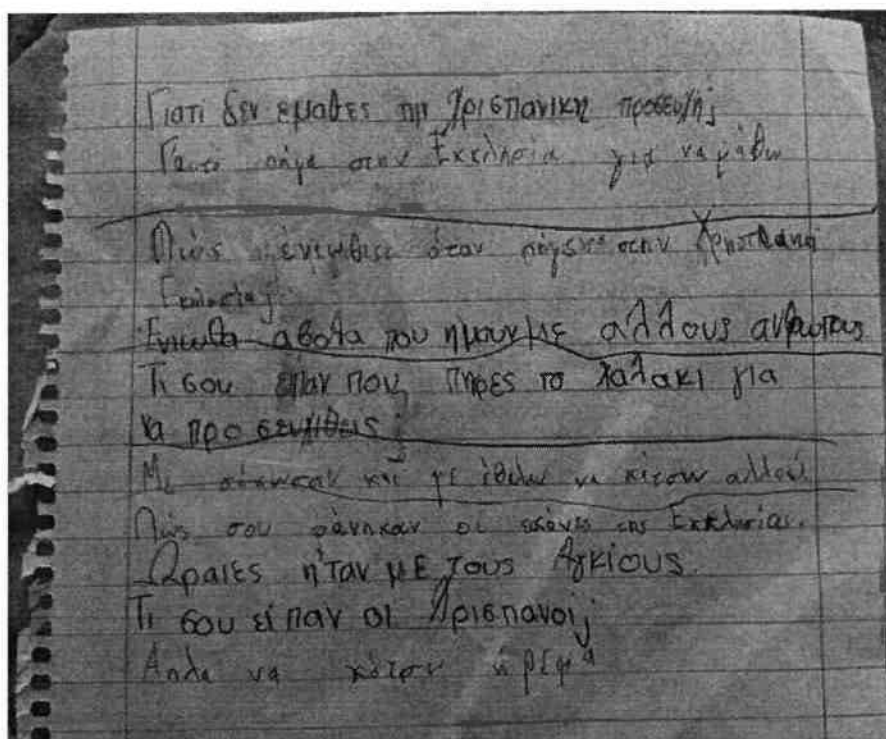 Γιατί δεν εμαθες την Χριστιανικη προσευχής;
Γιατί πήγα στην Εκκλησία για να μάθω
Πώς ένιωθες όταν πήγενες στην Χρηστιανή
Εκκλησία;
Ενιωθα αβολα που ημουν με αλλους ανθρωπους
Τι σου επαν που πηρες το χαλακι για
να προσευχιθεις;
Με σήκωσαν και με έβαλαν να κάτσω αλλού.
Πώς σου φάνηκαν οι εικόνες της Εκκλησίας.
Ωραιες ηταν με τους Αγκίους.
Τι σου είπαν οι Χριστιανοι;
Απλα να κάτσω ήρεμα